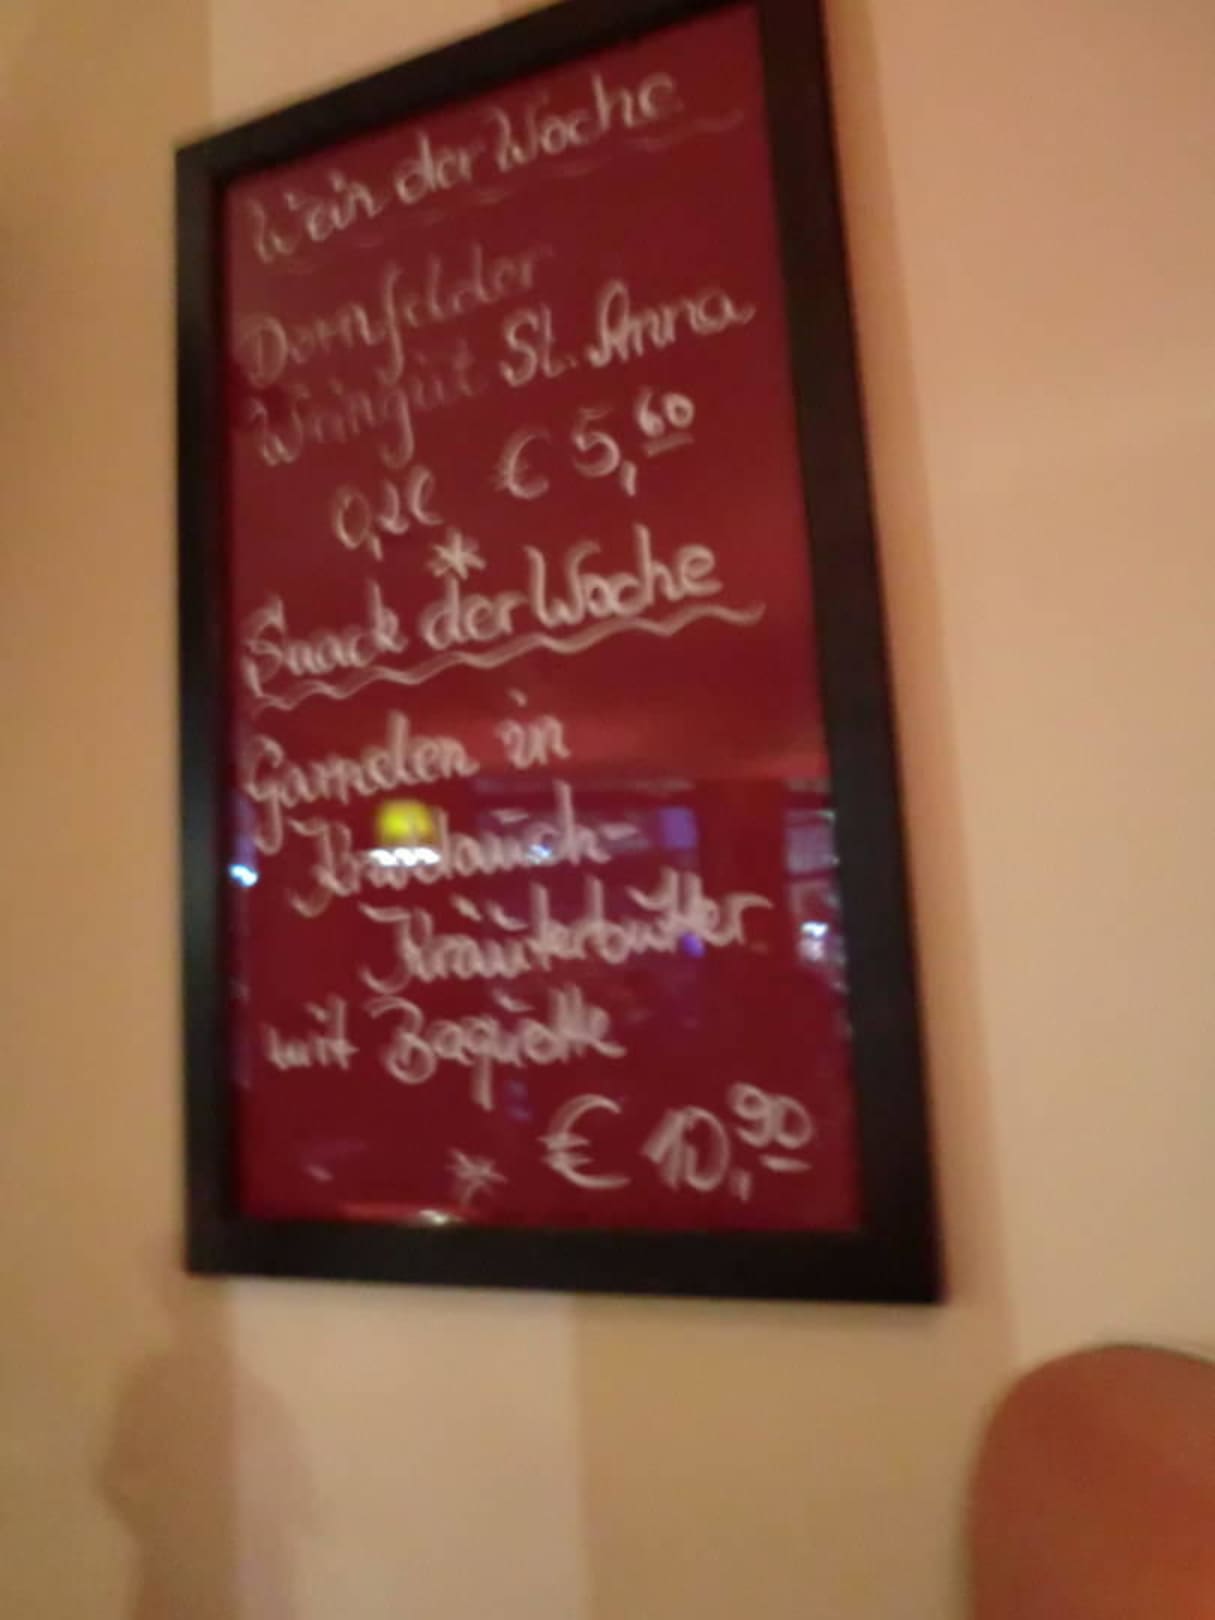 Wein der Woche
Dornfelder
Weingut St. Anna
0,2l € 5,60
*
Snack der Woche
Garnelen in
Knoblauch-
Kräuterbutter
mit Baguette
* € 10,90